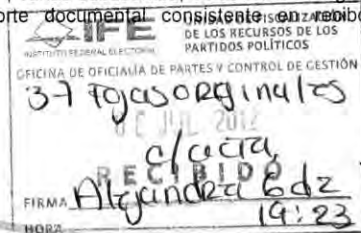 orte documental consistente en recib
IFE
INSTITUTO FEDERAL ELECTORAL
DE LOS RECURSOS DE LOS
PARTIDOS POLÍTICOS
OFICINA DE OFICIALIA DE PARTES Y CONTROL DE GESTIÓN
37 fojas originales
JUL 2012
c/acta
RECIBIDO
FIRMA Alejandra Gdz
HORA 19:23